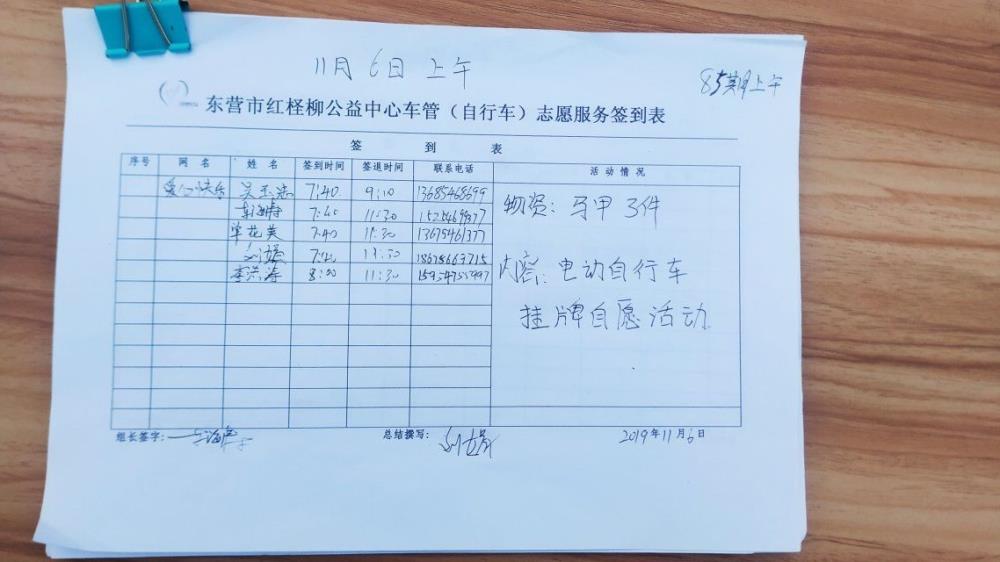 11月6日上午
85期上午
东营市红柽柳公益中心车管（自行车）志愿服务签到表
签 到 表
序号 网名 姓名 签到时间 签退时间 联系电话 活动情况
吴玉 7:40 9:10 13685468699
7:40 11:30
单花英 7:40 11:30 13675461377
刘 7:40 11:30 18678663715
李洪涛 8:00 11:30
物资: 马甲3件
内容: 电动自行车
挂牌自愿活动
组长签字: 总结撰写: 刘 2019年11月6日